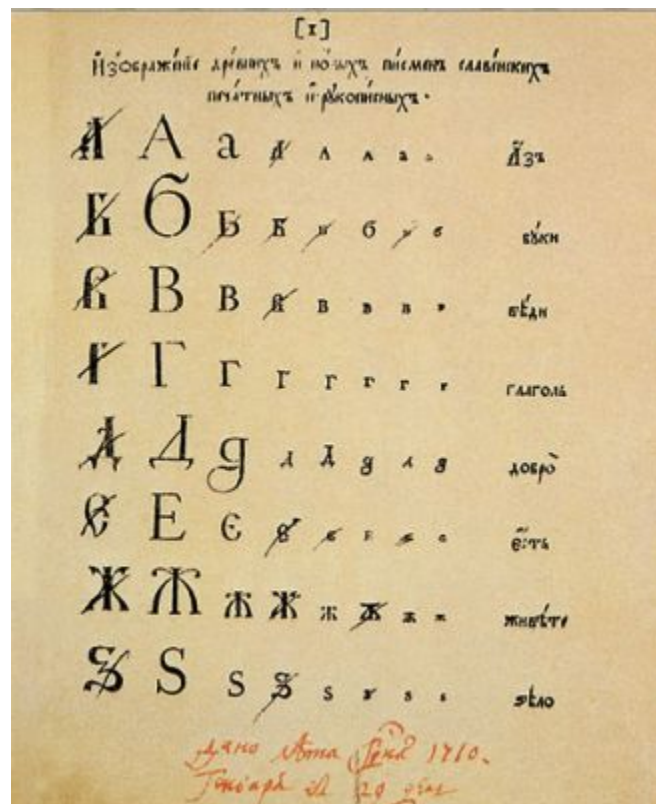 [1]
Изображе́нїе дре́внихъ и но́выхъ пи́сменъ славе́нскихъ
печа́тныхъ и рꙋкопи́сныхъ.
А А а А А А а а А҆́зъ
Б Б Б Б Б б Б б бꙋ́ки
В В В В В В В В вѣ́ди
Г Г Г Г Г Г Г Г глаго́ль
Д Д д Д Д д Д д добро̀
Е Е Є Е Є Е Є Є є҆́сть
Ж Ж Ж Ж Ж Ж Ж Ж живѣ́те
Ѕ Ѕ Ѕ Ѕ Ѕ Ѕ Ѕ Ѕ ѕѣло̀
дано лѣта 1710.
Генваря 20